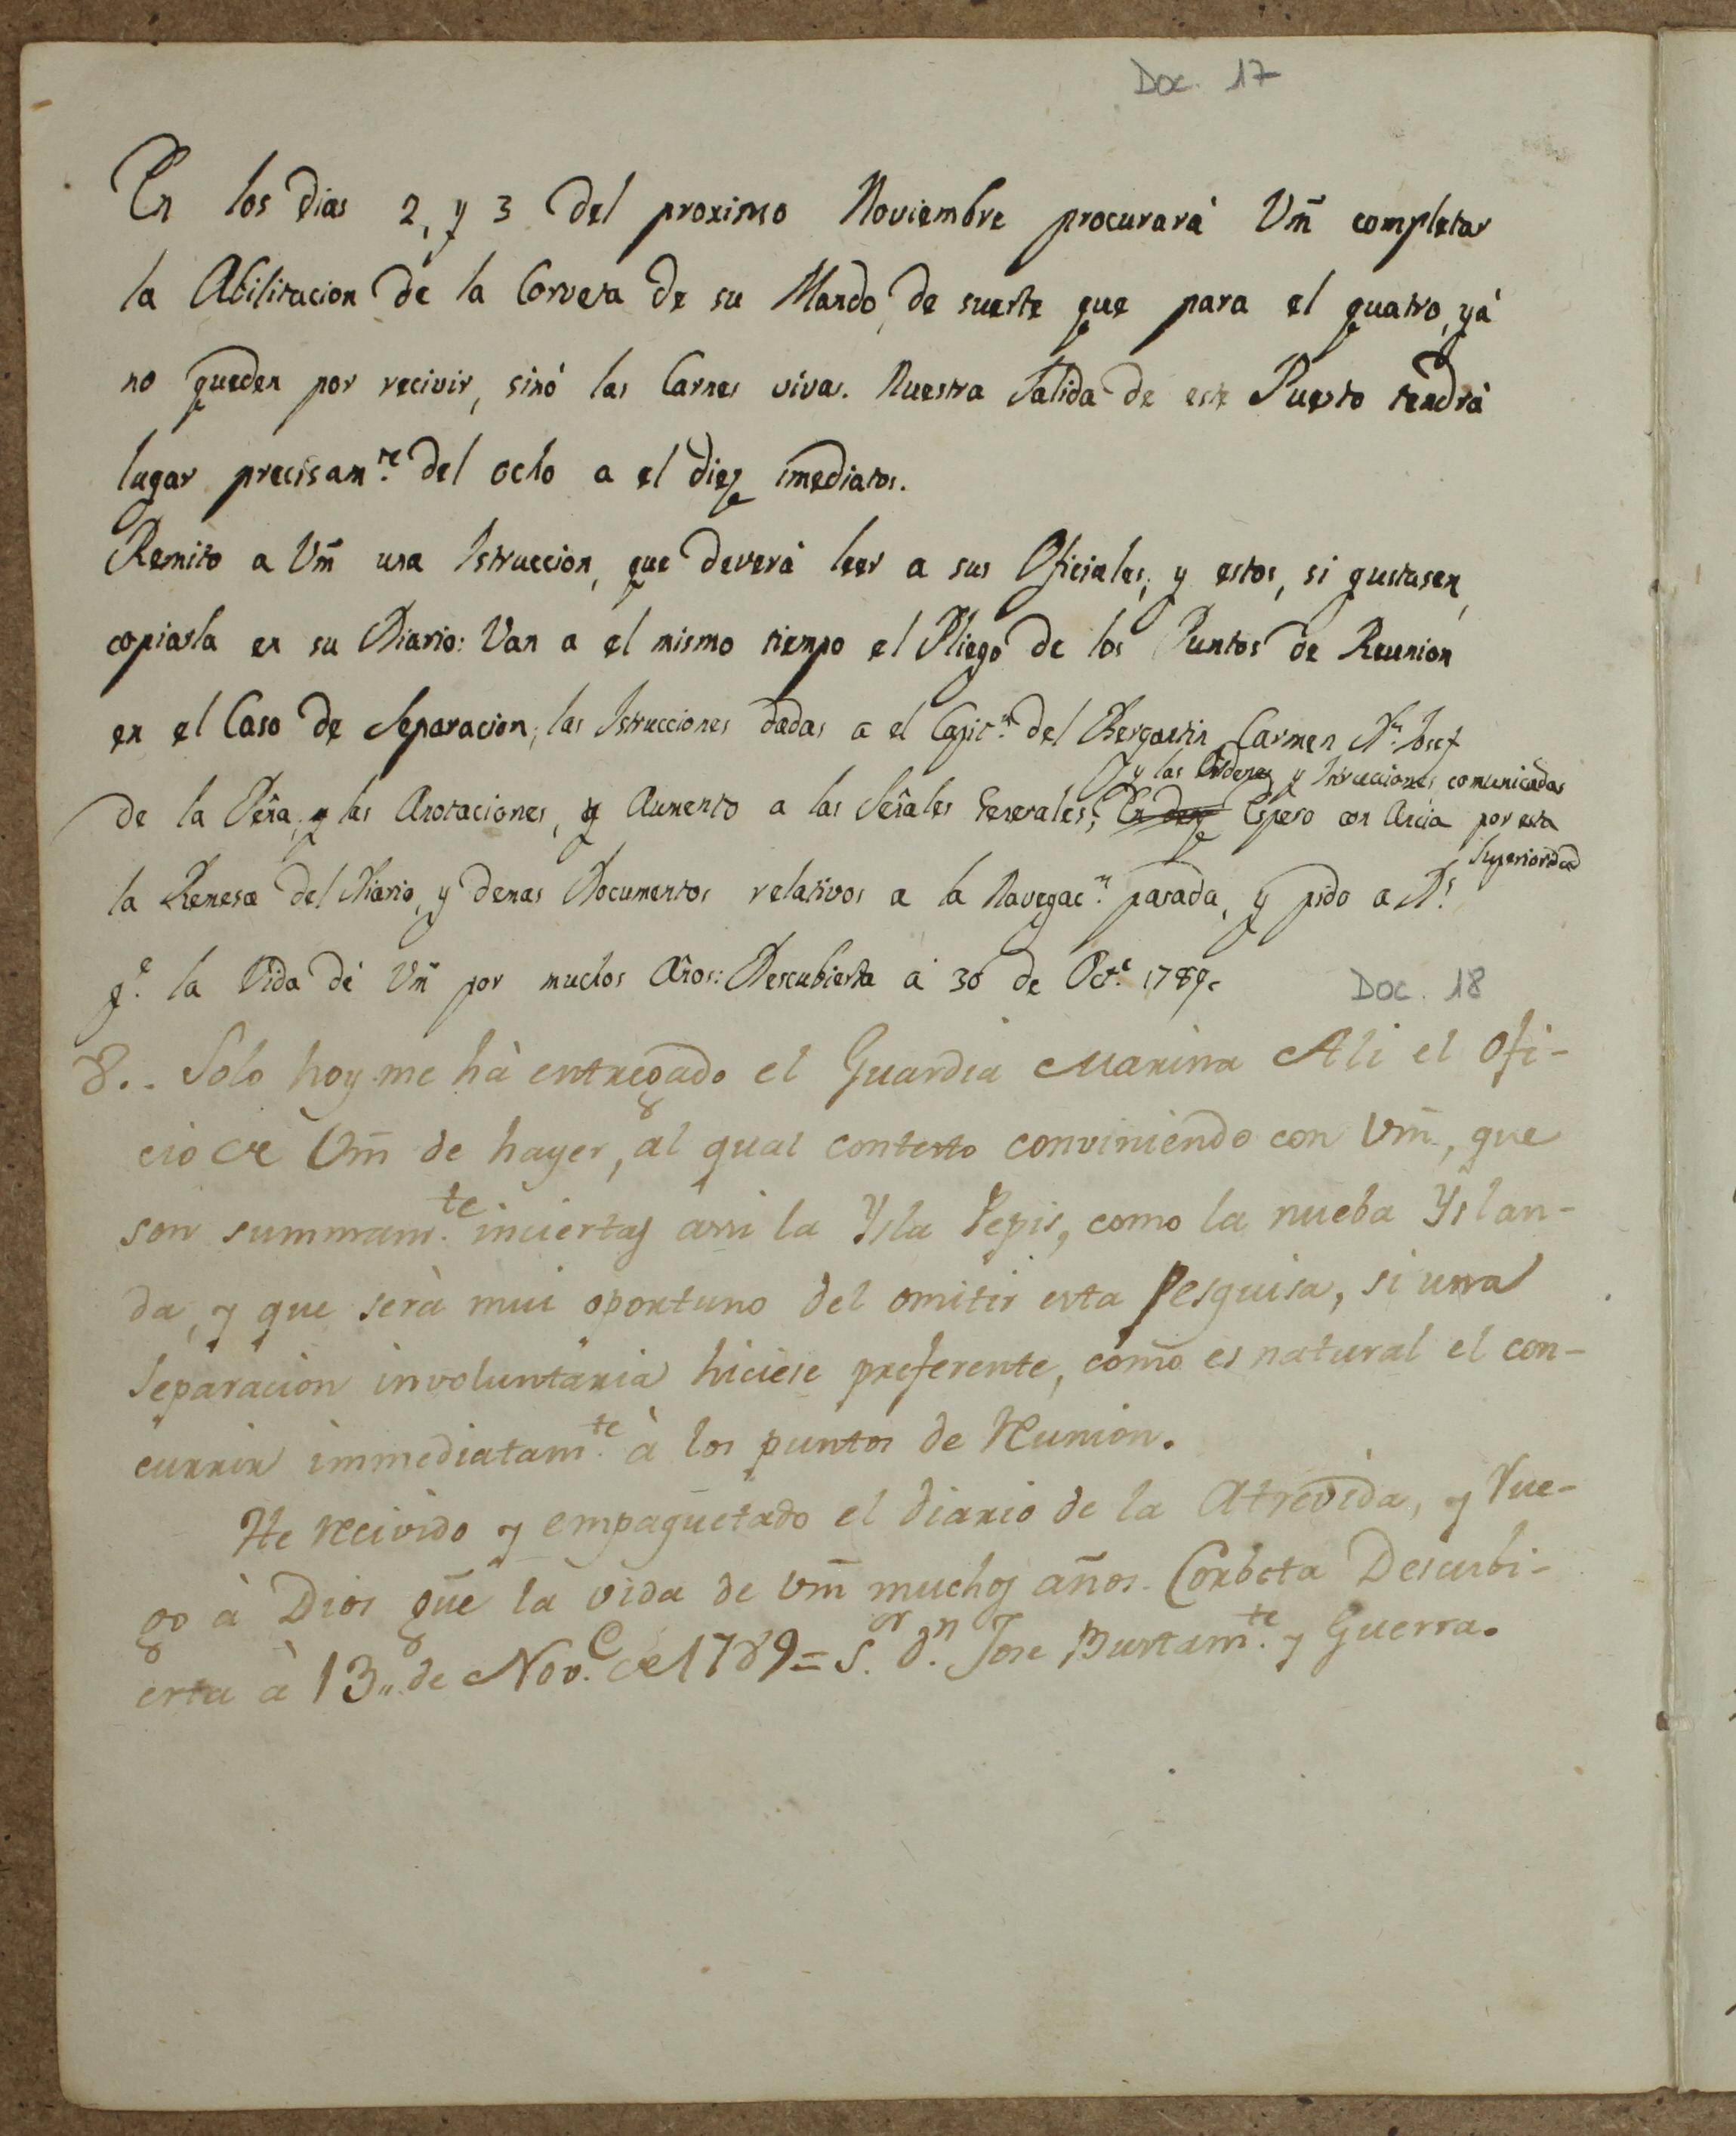 Doc. 17
En los dias 2, y 3 del proximo Noviembre procurará Vm̃ completar
la Abilitacion de la Corveta de su Mando, de suerte que para el quatro, yá
no queden por recivir, sinó las Carnes vivas. Nuestra Salida de este Puerto tendrá
lugar precisam.te del ocho a el diez imediatos.
Remito a Vm̃ una Istruccion, que deverá leer a sus Oficiales; y estos, si gustasen,
copiarla en su Diario: Van a el mismo tiempo el Pliego de los Puntos de Reunion
en el Caso de Separacion; las Istrucciones dadas a el Capit.n del Bergantin Carmen D.n Josef
y las Ordenes y Intrucciones comunicadas
de la Peña, y las Anotaciones, y Aumento a las Señales Generales; Espero con Ancia por esta
Superioridad
la Remesa del Diario, y demas Documentos relativos a la Navegac.n pasada, y pido a D.s
g.e la Vida de Vm̃ por muchos Años: Descubierta a 30 de Oct.e 1789.
Doc. 18
8.. Solo hoy me hà entregado el Guardia Marina Ali el ofi-
cio de Vm̃ de hayer, al qual contesto conviniendo con Vm̃, que
son summam.te inciertas assi la Ysla Pepis, como la nueba Yslan-
da, y que serà mui oportuno del omitir esta Pesquisa, si una
Separacion involuntaria hiciese preferente, como es natural el con-
currir immediatam.te à los puntos de Reunion.
He recivido y empaquetado el diario de la Atrevida, y Rue-
go à Dios gũe la vida de Vm̃ muchos años. Corbeta Descubi-
erta à 13,, de Nov.e de 1789 = S.or d.n Jose Bustam.te y Guerra.